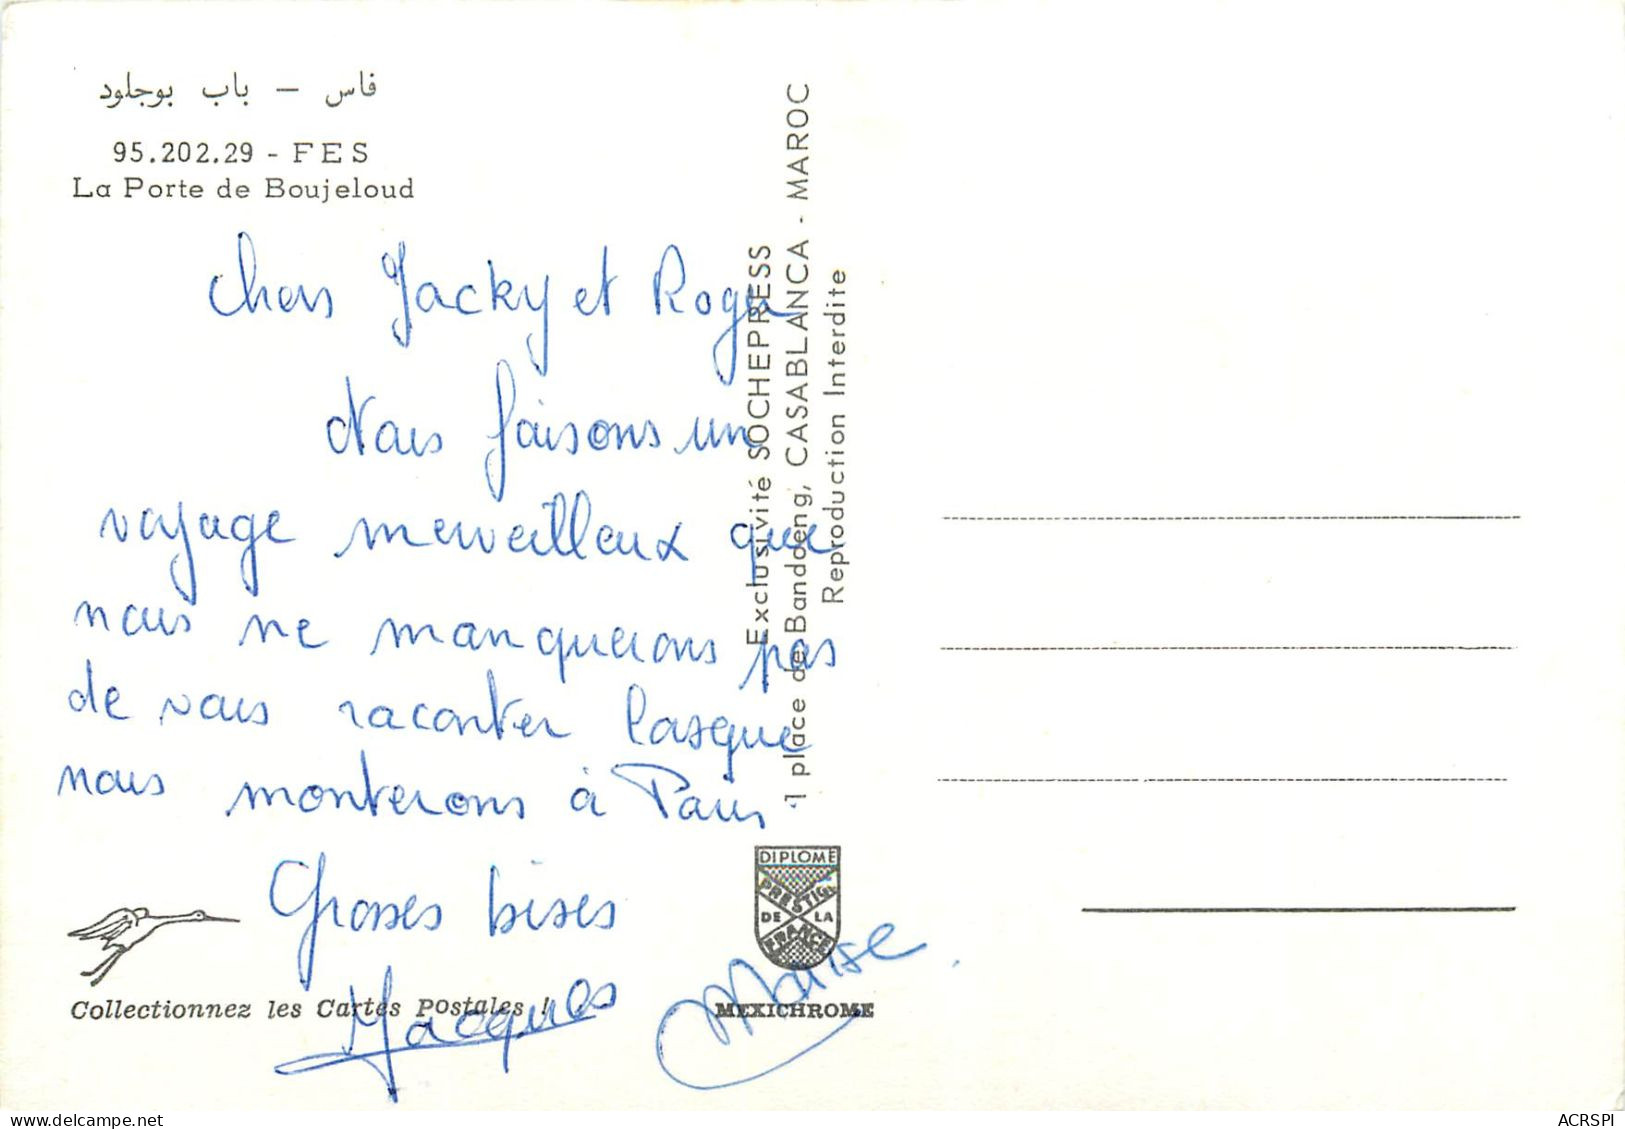 فاس – باب بوجلود
95.202.29 - FES
La Porte de Boujeloud
Chers Jacky et Roger
Nous faisons un
voyage merveilleux que
nous ne manquerons pas
de vous raconter lorsque
nous monterons à Paris.
Grosses bises
Jacques
Marise
Collectionnez les Cartes Postales !
Exclusivité SOCHEPRESS
1 place de Bandoeng, CASABLANCA - MAROC
Reproduction Interdite
DIPLOME
PRESTIGE
DE LA
FRANCE
MEXICHROME
www.delcampe.net
ACRSPI